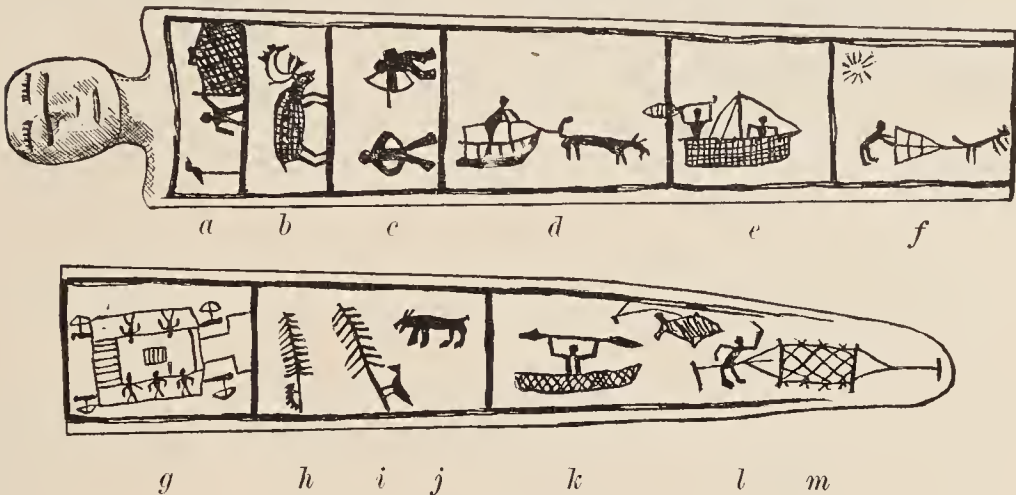 a b c d e f
g h i j k l m